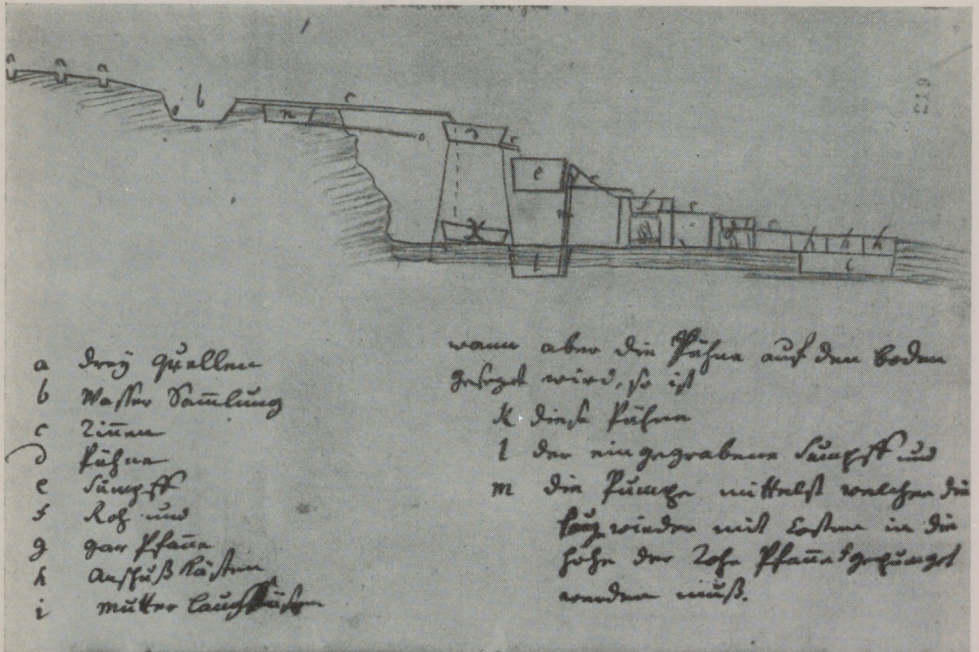 a drey Quellen
b Wasser Sam̅lung
c Rin̅en
d Bühne
e Sumpff
f Roh und
g gar Pfan̅e
h Anschuß Kästen
i Mutter Laug
wann aber die Bühne auf den boden
gesezet wird, so ist
k diese Bühne
l der eingegrabene Sumpff und
m die Pumpe mittelst welcher die
laug wieder mit Costen in die
Höhe der Rohe Pfan̅e gepumpet
werden muß.